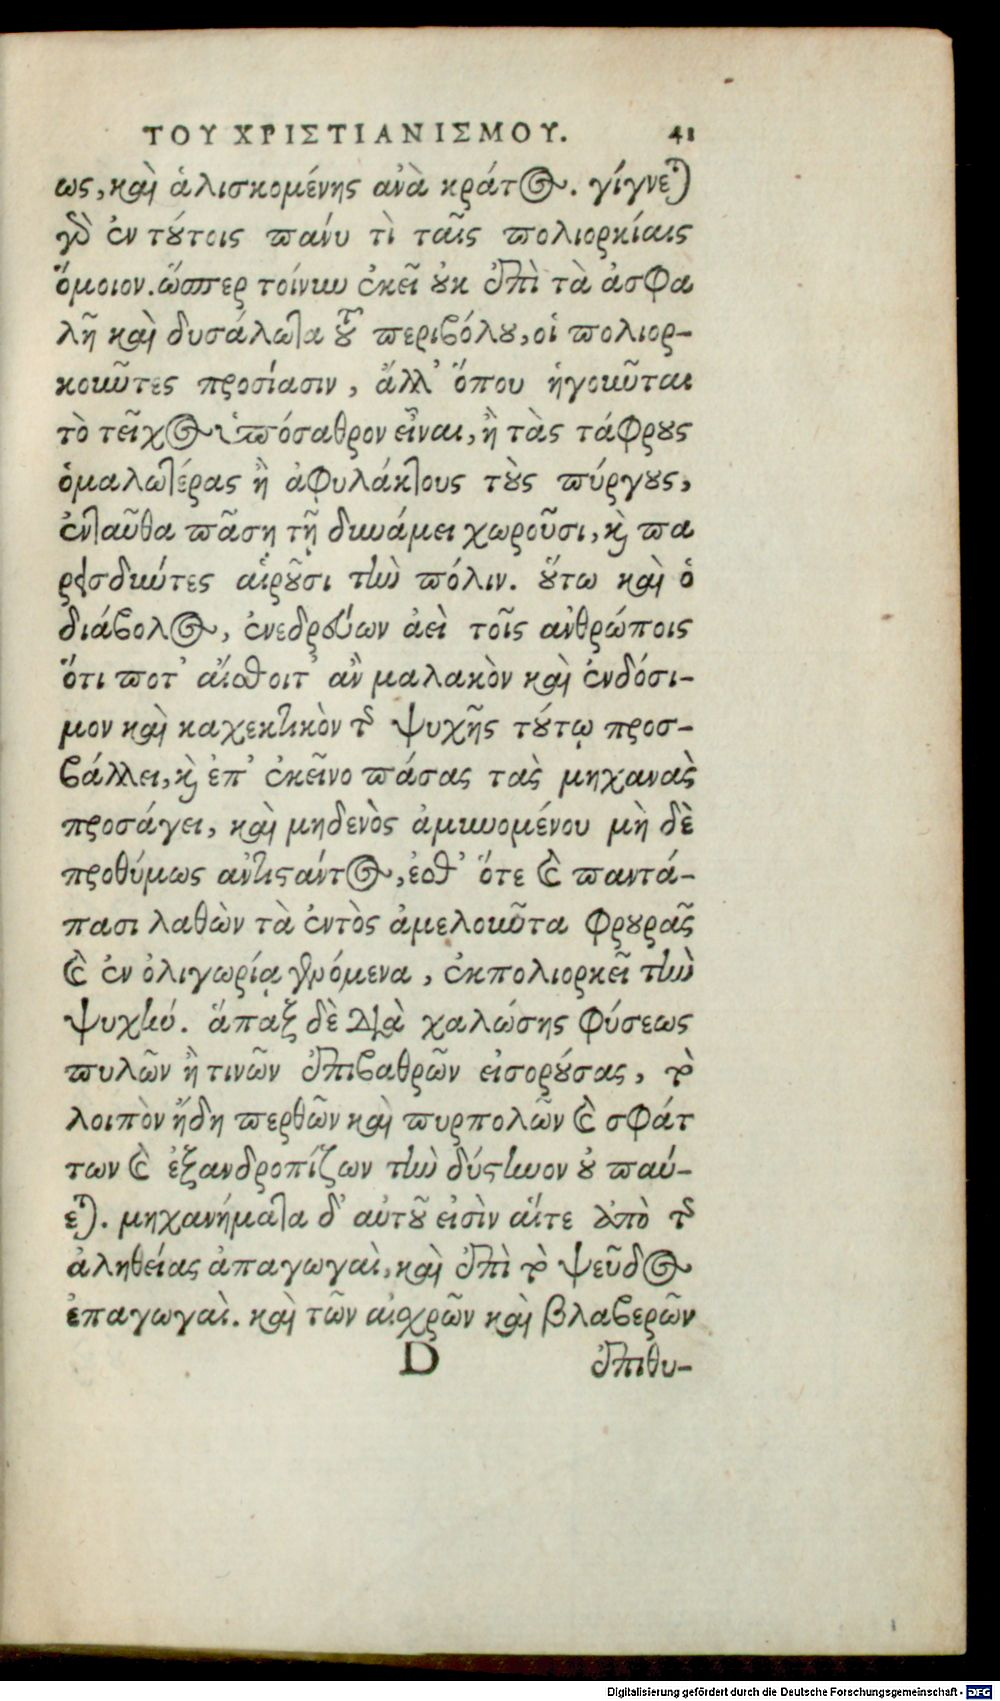 ΤΟΥ ΧΡΙΣΤΙΑΝΙΣΜΟΥ. 41
ως, καὶ ἁλισκομένης ἀνὰ κράτος. γίγνεται
γὰρ ἐν τούτοις πάνυ τὶ ταῖς πολιορκίαις
ὅμοιον. ὥσπερ τοίνυν ἐκεῖ οὐκ ἐπὶ τὰ ἀσφα
λῆ καὶ δυσάλωτα τοῦ περιβόλου, οἱ πολιορ-
κοῦντες προσίασιν, ἀλλ' ὅπου ἡγοῦνται
τὸ τεῖχος ὑπόσαθρον εἶναι, ἢ τὰς τάφρους
ὁμαλωτέρας ἢ ἀφυλάκτους τοὺς πύργους,
ἐνταῦθα πάσῃ τῇ δυνάμει χωροῦσι, καὶ πα
ρεισδύντες αἱροῦσι τὴν πόλιν. οὕτω καὶ ὁ
διάβολος, ἐνεδρεύων ἀεὶ τοῖς ἀνθρώποις
ὅτι ποτ' αἴσθοιτ' ἂν μαλακὸν καὶ ἐνδόσι-
μον καὶ καχεκτικὸν τῆς ψυχῆς τούτῳ προσ-
βάλλει, καὶ ἐπ' ἐκεῖνο πάσας τὰς μηχανὰς
προσάγει, καὶ μηδενὸς ἀμυνομένου μὴ δὲ
προθύμως ἀντιστάντος, ἔσθ' ὅτε καὶ παντά-
πασι λαθὼν τὰ ἐντὸς ἀμελοῦντα φρουρᾶς
καὶ ἐν ὀλιγωρίᾳ γενόμενα, ἐκπολιορκεῖ τὴν
ψυχήν. ἅπαξ δὲ διὰ χαλώσης φύσεως
πυλῶν ἤ τινῶν ἐπιβαθρῶν εἰσορούσας, τὸ
λοιπὸν ἤδη περθῶν καὶ πυρπολῶν καὶ σφάτ
των καὶ ἐξανδροπίζων τὴν δύστηνον οὐ παύ-
εται. μηχανήματα δ' αὐτοῦ εἰσὶν αἵτε ἀπὸ τῆς
ἀληθείας ἀπαγωγαὶ, καὶ ἐπὶ τὸ ψεῦδος
ἐπαγωγαὶ. καὶ τῶν αἰσχρῶν καὶ βλαβερῶν
D ἐπιθυ-
Digitalisierung gefördert durch die Deutsche Forschungsgemeinschaft - DFG